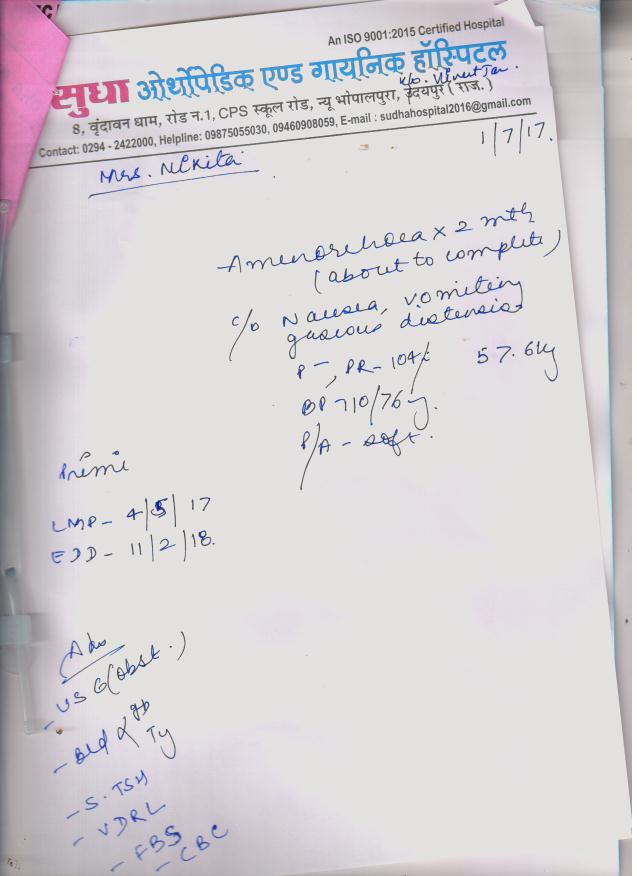 An ISO 9001:2015 Certified Hospital
सुधा ओर्थोपेडिक एण्ड गायनिक हॉस्पिटल
8, वृंदावन धाम, रोड न.1, CPS स्कूल रोड, न्यू भोपालपुरा, उदयपुर ( राज. )
Contact: 0294 - 2422000, Helpline: 09875055030, 09460908059, E-mail : sudhahospital2016@gmail.com
1/7/17.
Mrs. Nikita
Amenorrhoea x 2 mth
(about to complete)
c/o Nausea, vomiting
gaseous distension
P - , PR - 104/
57.6 kg
BP - 110/76
P/A - soft.
Primi
LMP - 4/5/17
EDD - 11/2/18.
Adv
- USG (obst.)
- Bld
- S. TSH
- VDRL
- FBS
- CBC